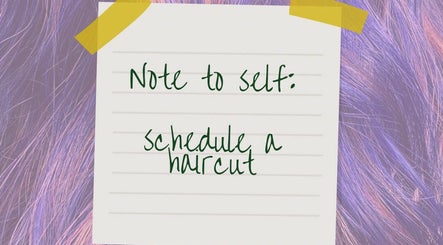 Note to self:
schedule a
haircut